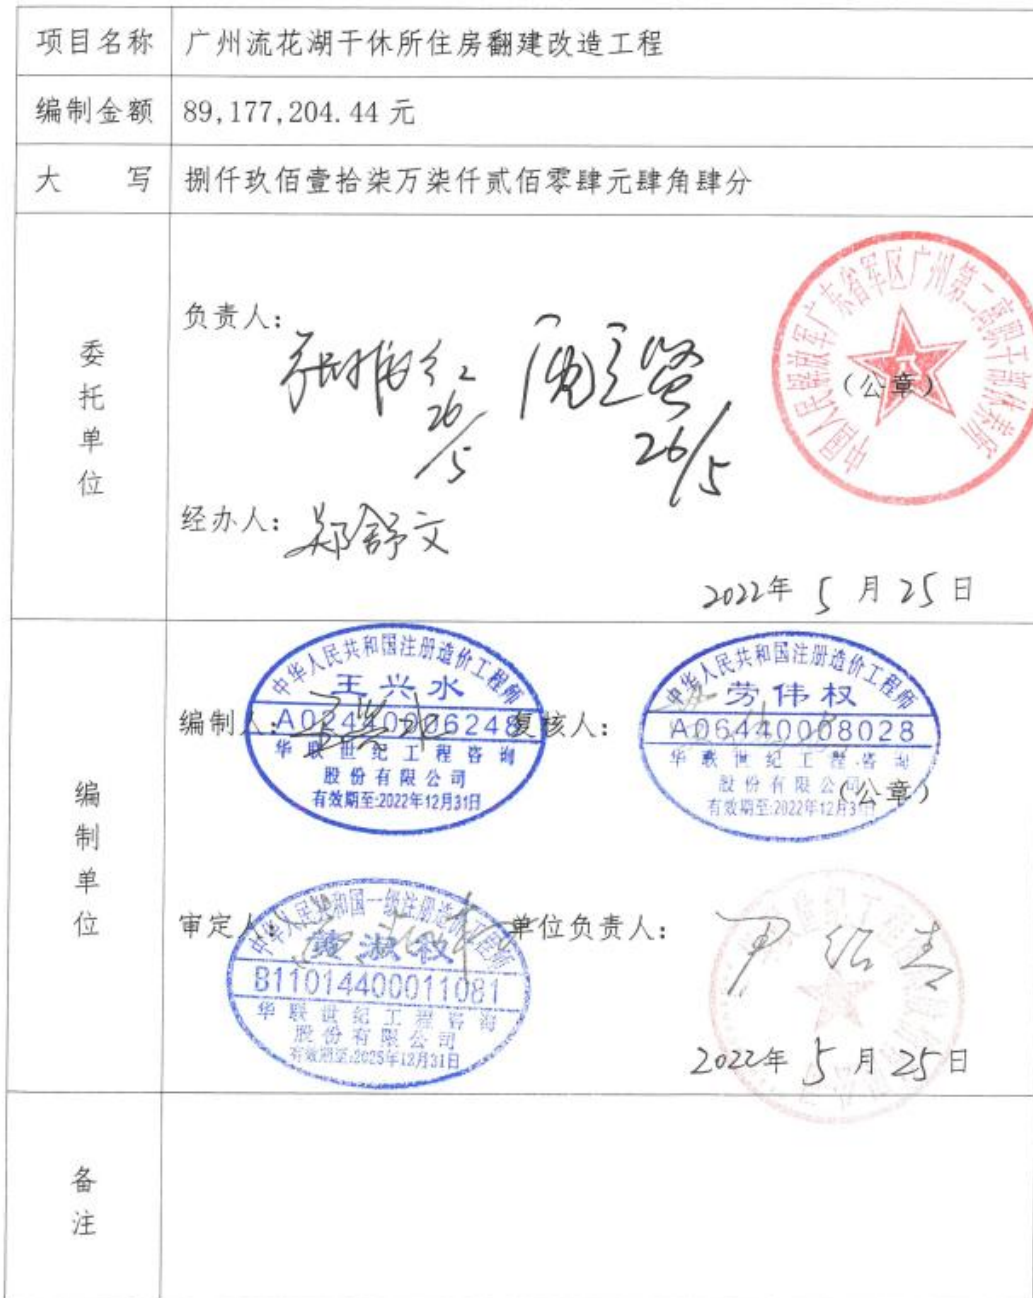 项目名称 广州流花湖干休所住房翻建改造工程
编制金额 89,177,204.44元
大 写 捌仟玖佰壹拾柒万柒仟贰佰零肆元肆角肆分
委托单位
负责人:
26/5
26/5
中国人民解放军广东省军区广州第二离职干部休养所
(公章)
经办人: 郑舒文
2022年 5 月 25 日
编制单位
编制人:
中华人民共和国注册造价工程师
王兴水
A02440006248
华联世纪工程咨询
股份有限公司
有效期至:2022年12月31日
复核人:
中华人民共和国注册造价工程师
劳伟权
A06440008028
华联世纪工程咨询
股份有限公司
有效期至:2022年12月31日
(公章)
审定人:
中华人民共和国一级注册造价工程师
黄淑
B11014400011081
华联世纪工程咨询
股份有限公司
有效期至:2025年12月31日
单位负责人:
2022年 5 月 25 日
备注